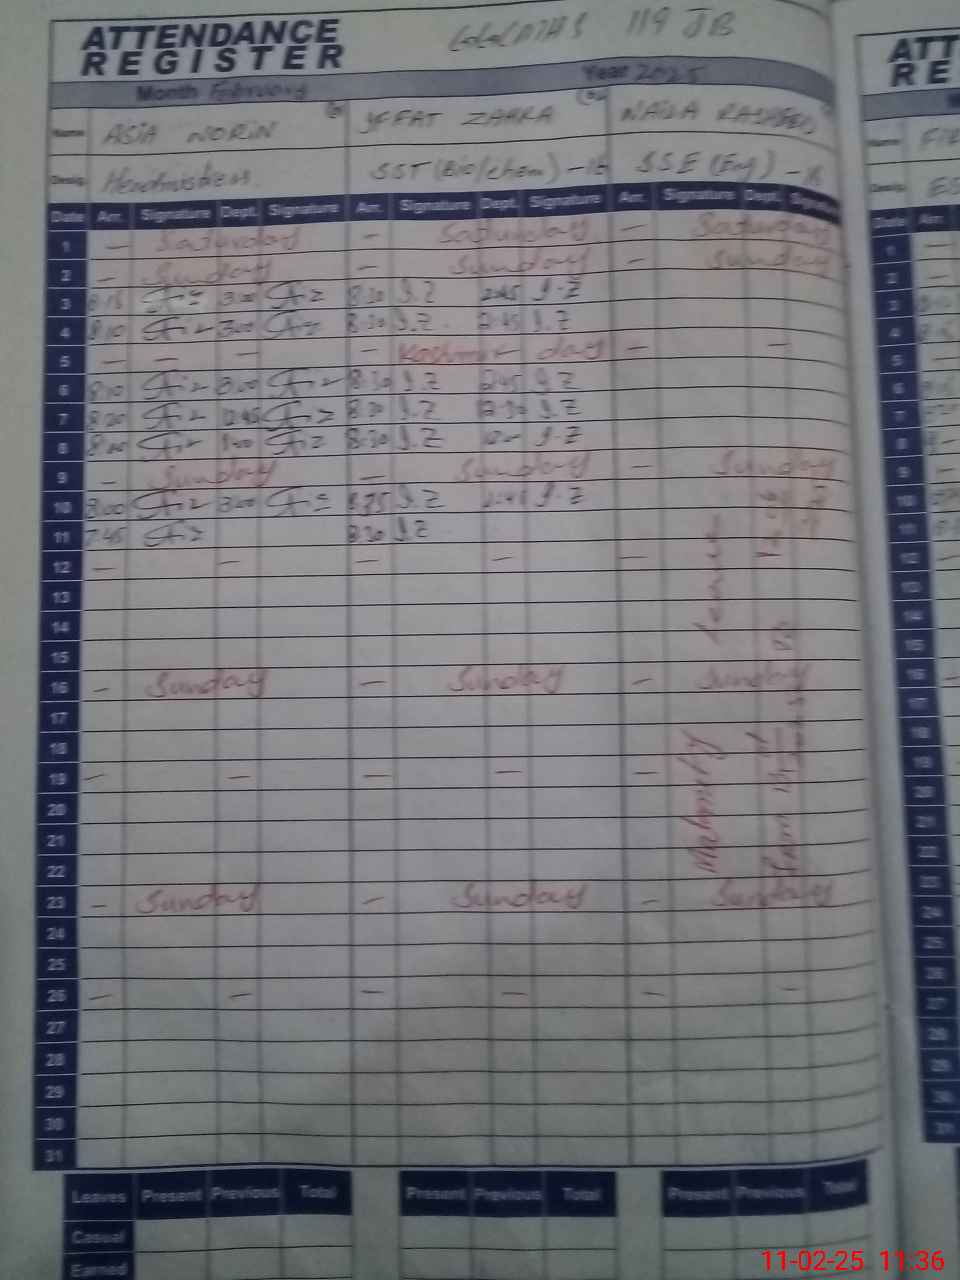 ATTENDANCE
REGISTER
119 JB
Month February Year 2025
Name ASIA NORIN YFFAT ZAHRA NAILA RASHEED
Desig. Headmistress SST (Bio/chem) -16 SSE (Eng) -16
Date Arr. Signature Dept. Signature Arr. Signature Dept. Signature Arr. Signature Dept. Signature
1 — Saturday — Saturday — Saturday
2 — Sunday — Sunday — Sunday
3 8:15 3:00 8:30 J.Z 2:45 J.Z
4 8:10 3:00 8:30 J.Z 2:45 J.Z
5 — — — — Kashmir day — —
6 8:10 3:00 8:30 J.Z 2:45 J.Z
7 8:20 12:45 8:30 J.Z 12:30 J.Z
8 8:00 1:00 8:30 J.Z J.Z
9 — Sunday — Sunday — Sunday
10 8:00 3:00 8:25 J.Z 2:45 J.Z
11 7:45 8:30 J.Z
12 — — — — —
13
14
15
16 — Sunday — Sunday — Sunday
17
18
19 — — — — —
20
21
22
23 — Sunday — Sunday — Sunday
24
25
26 — — — — — —
27
28
29
30
31
Maternity Leave
From
Leaves Present Previous Total Present Previous Total Present Previous Total
Casual
Earned
ATT
RE
Name
Desig.
Date Arr.
1
2
3
4
5
6
7
8
9
10
11
12
13
14
15
16
17
18
19
20
21
22
23
24
25
26
27
28
29
30
31
11-02-25 11:36